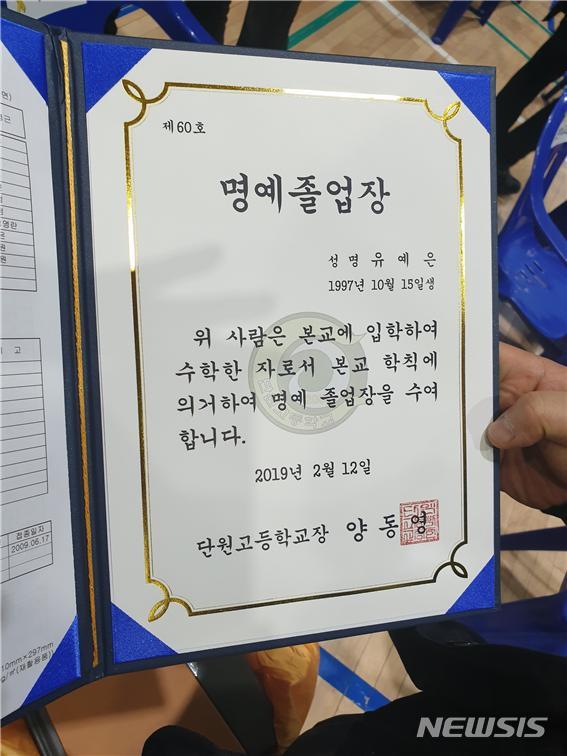 제60호
명예졸업장
성명 유 예 은
1997년 10월 15일생
위 사람은 본교에 입학하여
수학한 자로서 본교 학칙에
의거하여 명예 졸업장을 수여
합니다.
2019년 2월 12일
단원고등학교장 양 동 영
고
접종일자
2009.06.17
10mm×297mm
g/㎡(재활용품)
NEWSIS